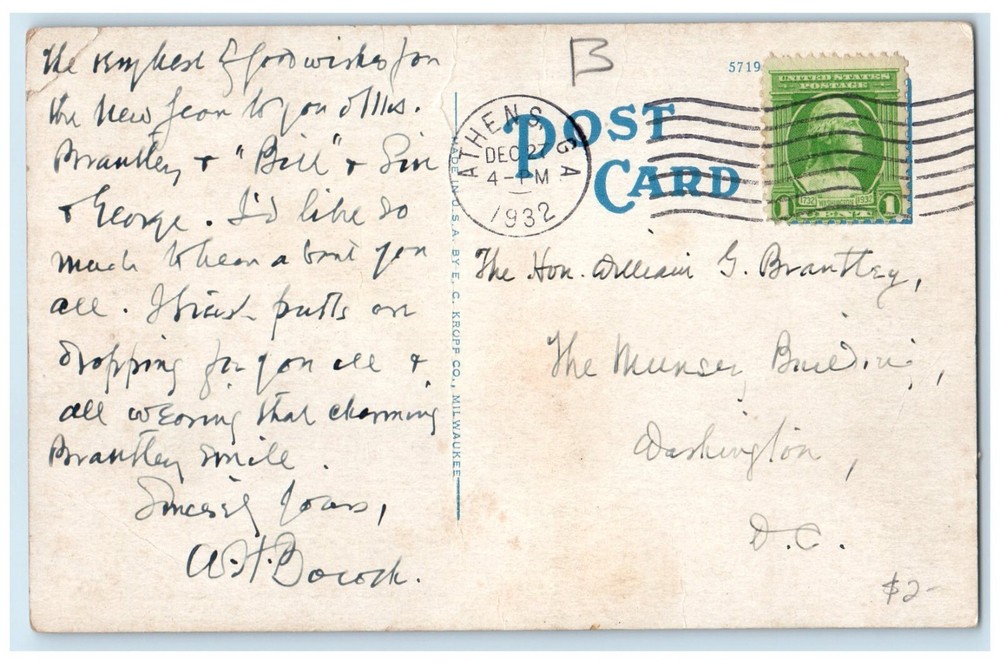 The very best of good wishes for
the New Year to you & Mrs.
Brantley & "Bill" &
& George. I'd like so
much to hear about you
all. I trust putts are
dropping for you all &
all wearing that charming
Brantley smile.
Sincerely yours,
W. H. Bocock.
B
5719
POST
CARD
ATHENS, GA
DEC 27
4-PM
1932
UNITED STATES
POSTAGE
1732 WASHINGTON 1932
1 CENT 1
MADE IN U.S.A. BY E. C. KROPP CO., MILWAUKEE
The Hon. William G. Brantley,
The Munsey Building,
Washington,
D.C.
$2-